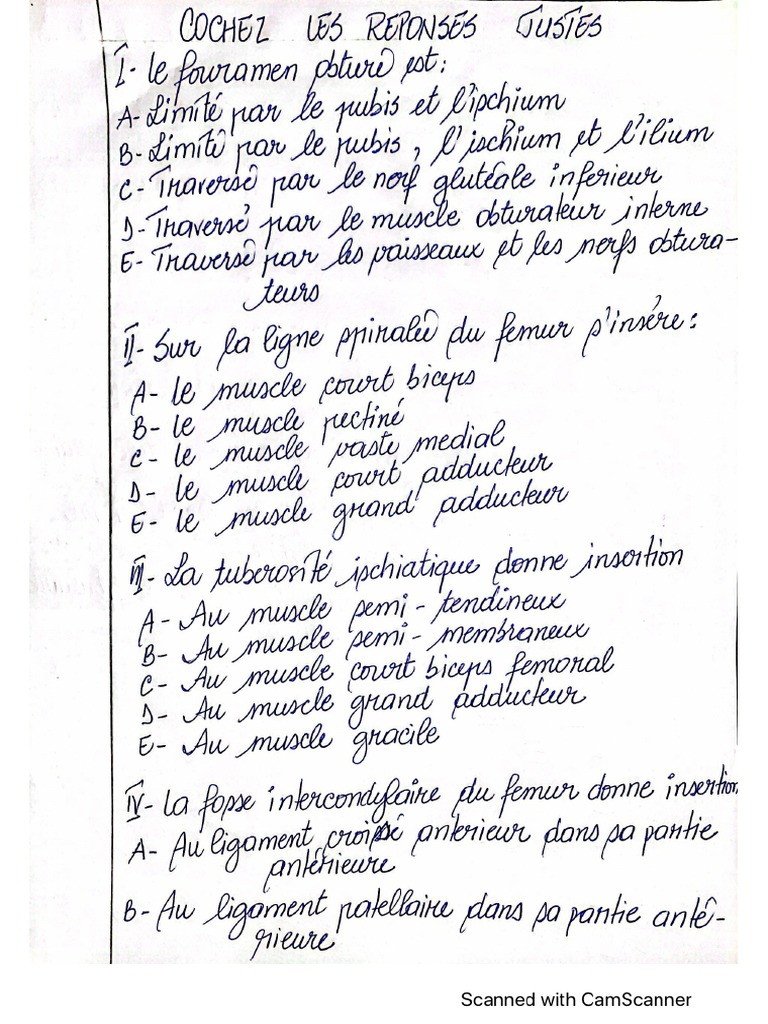 COCHEZ LES REPONSES JUSTES
I- le fouramen obturé est:
A- Limité par le pubis et l'ischium
B- Limité par le pubis, l'ischium et l'ilium
C- Traversé par le nerf glutéale inferieur
D- Traversé par le muscle obturateur interne
E- Traversé par les vaisseaux et les nerfs obtura-
teurs
II- Sur la ligne spiralée du femur s'insére:
A- le muscle court biceps
B- le muscle pectiné
C- le muscle vaste medial
D- le muscle court adducteur
E- le muscle grand adducteur
III- La tuberosité ischiatique donne insertion
A- Au muscle semi-tendineux
B- Au muscle semi-membraneux
C- Au muscle court biceps femoral
D- Au muscle grand adducteur
E- Au muscle gracile
IV- la fosse intercondylaire du femur donne insertion
A- Au ligament croisé anterieur dans sa partie
antérieure
B- Au ligament patellaire dans sa partie anté-
rieure
Scanned with CamScanner